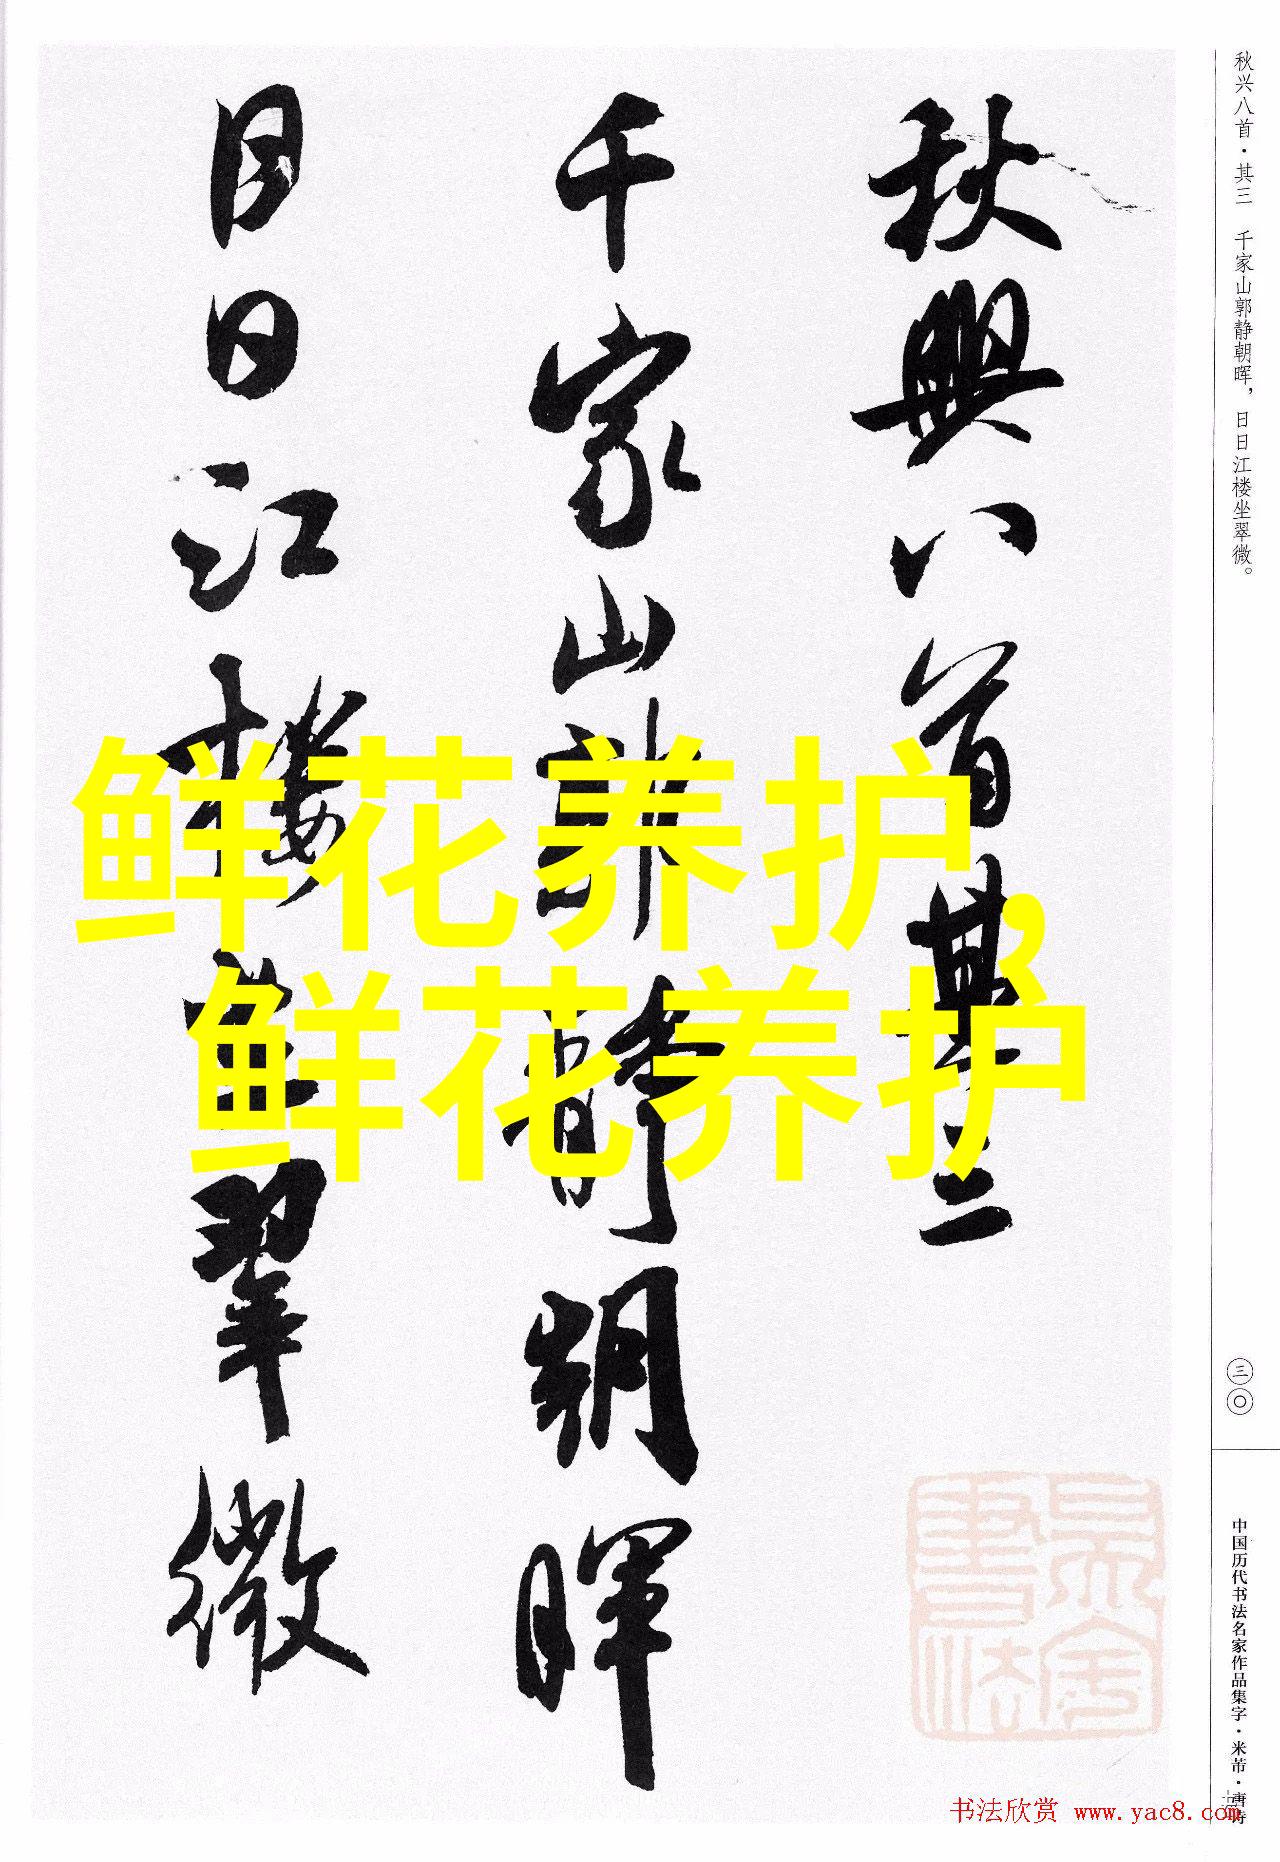 秋興八首其三
千家山郭静朝暉
日日江樓坐翠微
秋兴八首·其三 千家山郭静朝晖，日日江楼坐翠微。
三〇
中国历代书法名家作品集字·米芾·唐诗
鲜花养护,
鲜花养护
书法欣赏 www.yac8.com